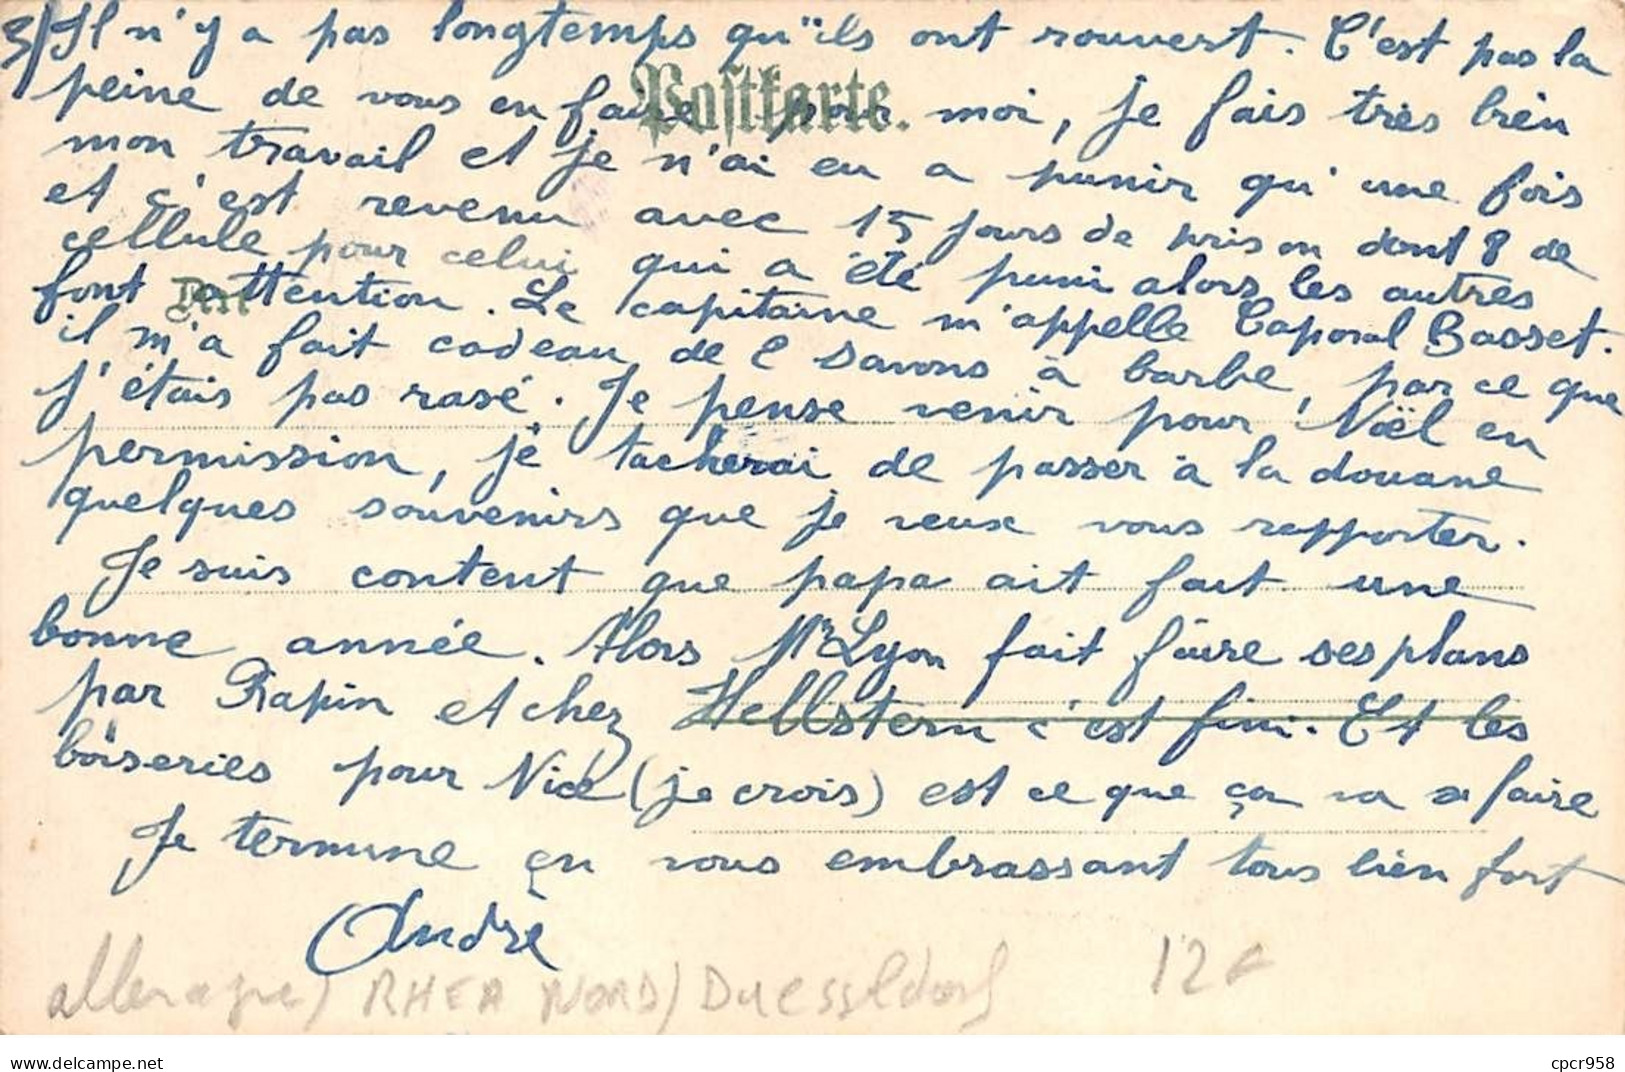 3/ Il n'y a pas longtemps qu'ils ont rouvert. C'est pas la
peine de vous en faire pour moi, je fais très bien
Postkarte.
mon travail et je n'ai eu a punir qu'une fois
et c'est revenu avec 15 jours de prison dont 8 de
cellule pour celui qui a été puni alors les autres
font attention. Le capitaine m'appelle Caporal Basset.
il m'a fait cadeau de 2 savons à barbe, par ce que
j'étais pas rasé. Je pense venir pour Noël en
permission, je tacherai de passer à la douane
quelques souvenirs que je veux vous rapporter.
Je suis content que papa ait fait une
bonne année. Alors Mr Lyon fait faire ses plans
par Rapin et chez Hellstern c'est fini. Et les
boiseries pour Nice (je crois) est ce que ça va se faire
Je termine en vous embrassant tous bien fort
André
allemagne / RHEA NORD / Duesseldorf 12€
delcampe.net
cpcr958